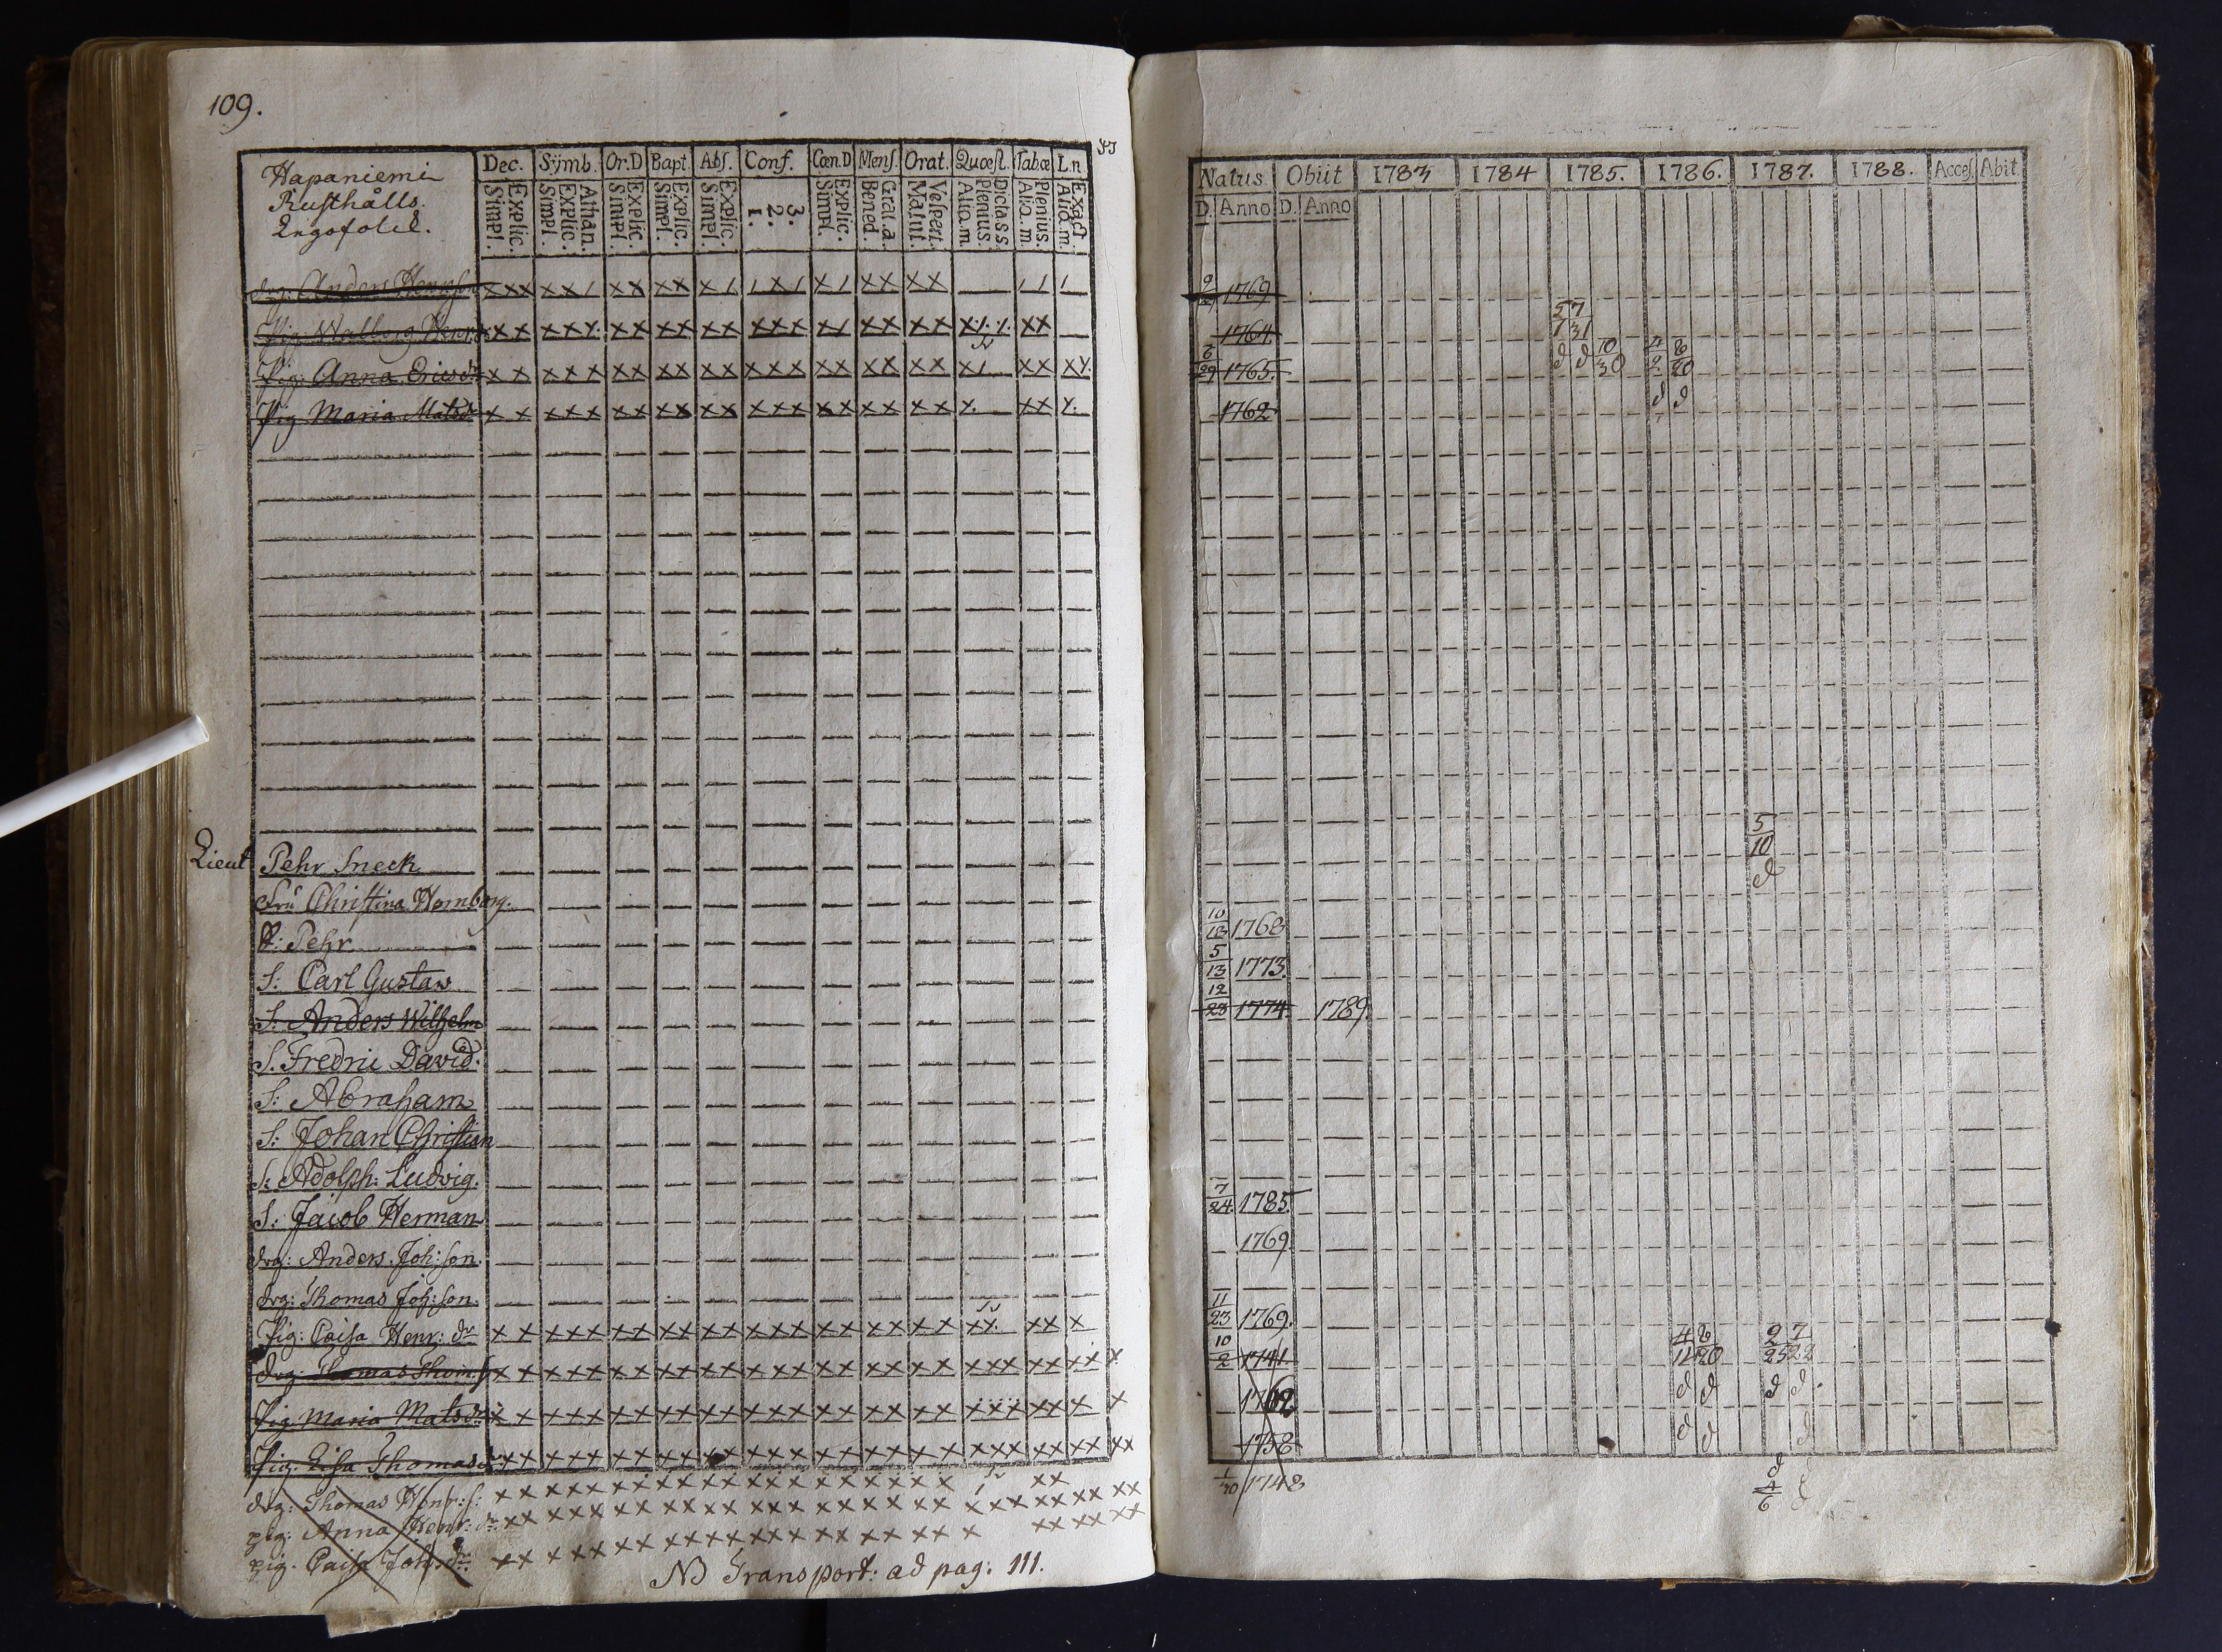 109.
Hapaniemi
Rusthålls.
Dec. Symb. Or.D Bapt. Abſ. Conf. Cœn.D Menſ. Orat. Quœſt. Tabœ L.n
Simpl. Explic. Simpl. Explic. Athan. Simpl. Explic. Simpl. Explic. Simpl. Explic. 1. 2. 3. Simpl. Explic. Bened. Grat. a. Matut. Veſpert. Aliq. m. Plenius. Dicta s s. Aliq. m. Plenius. Aliq. m. Exact.
drg: Anders Henr:ſon
Pig: Walborg Henr:
Pig: Anna Ericsdr
Pig Maria Matsdr
Lieut Pehr Sneck
Fru Christina Hornborg.
S: Pehr
S: Carl Gustav
S: Anders Wilhelm
S. Fredric David.
S: Abraham
S: Johan Christian
S: Adolph: Ludvig.
S: Jacob Herman
drg: Anders Joh:ſon.
drg: Thomas Joh:ſon.
Pig: Caisa Henr: dr
drg: Thomas Thom: s
Pig Maria Matsdr
Pig. Lisa Thomasdr
drg: Thomas Henr: s:
pig: Anna Henr: dr
pig. Caisa Joh: dr
NB Transport: ad pag: 111.
Natus Obiit 1783 1784 1785. 1786. 1787. 1788. Acceſ. Abit
D. Anno D. Anno
1769
1764 5/1 7/31
6/29 1765. d d 10/30 4/2 8/20
1762 d d
5/10
d
10/13 1768
5/13 1773.
12/23 1774. 1789.
7/24 1785.
1769.
11/23 1769.
10/2 1741. 4/11 8/20 2/25 7/22
1762 d d d d
1758 d d d
1/30 1748 d
4/6